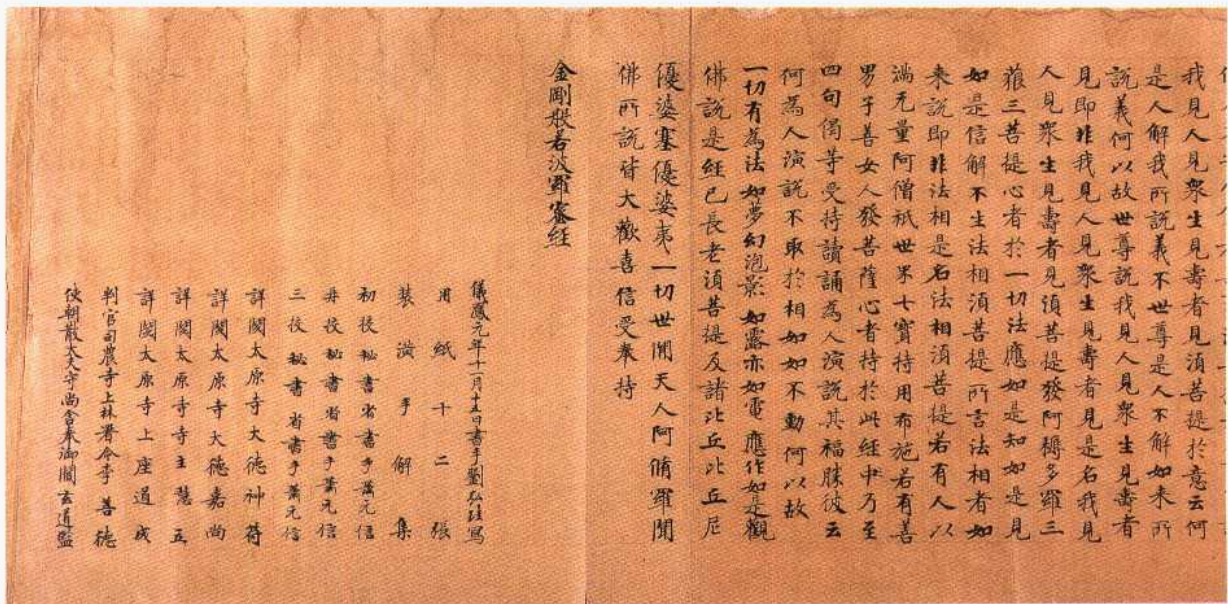 我見人見衆生見壽者見湏菩提於意云何
是人解我所說義不世尊是人不解如来所
說義何以故世尊說我見人見衆生見壽者
見即非我見人見衆生見壽者見是名我見
人見衆生見壽者見湏菩提發阿耨多羅三
藐三菩提心者於一切法應如是知如是見
如是信解不生法相湏菩提所言法相者如
来說即非法相是名法相湏菩提若有人以
滿无量阿僧祇世界七寶持用布施若有善
男子善女人發菩薩心者持於此經中乃至
四句偈等受持讀誦為人演說其福勝彼云
何為人演說不取於相如如不動何以故
一切有為法如夢幻泡影如露亦如電應作如是觀
佛說是經已長老湏菩提及諸比丘比丘尼
優婆塞優婆夷一切世間天人阿脩羅聞
佛所說皆大歡喜信受奉持
金剛般若波羅蜜經
儀鳳元年十一月十五日書手劉弘珪寫
用紙十二張
裝潢手解集
初校秘書省書手蕭元信
再校秘書省書手蕭元信
三校秘書省書手蕭元信
詳閱太原寺大德神苻
詳閱太原寺大德嘉尚
詳閱太原寺寺主慧立
詳閱太原寺上座道成
判官司農寺上林署令李善德
使朝散大夫守尚舍奉御閻玄道監